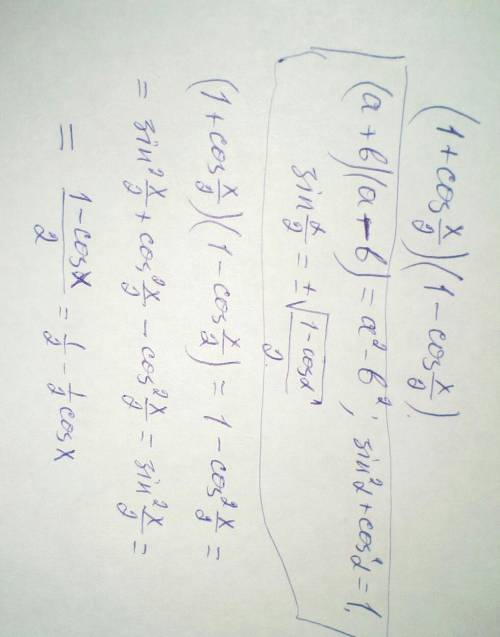 (1 + cos x/2)(1 − cos x/2).
(a + b)(a − b) = a² − b²; sin²α + cos²α = 1,
sin α/2 = ± √(1 − cosα)/2
(1 + cos x/2)(1 − cos x/2) = 1 − cos² x/2 =
= sin² x/2 + cos² x/2 − cos² x/2 = sin² x/2 =
= (1 − cosx)/2 = 1/2 − 1/2 cosx